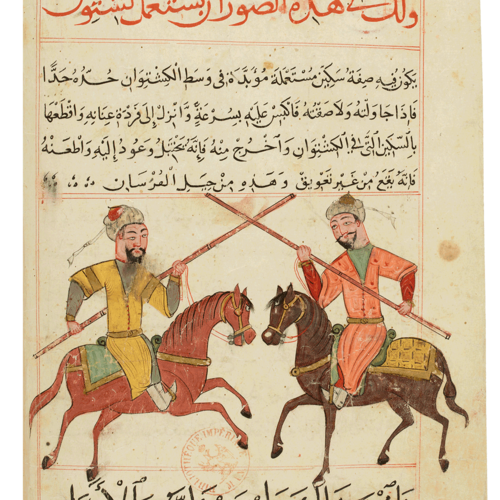 ولك في هذه الصورة ان تستعمل كشتوان
يكون فيه صفة سكين مستعملة مؤبدة في وسط الكشتوان حده جدا
فاذا جاولته ولاصقته فاكبس عليه بسرعة وانزل الى فردة عنانه واقطعها
بالسكين التي في الكشتوان واخرج منه فإنه يختبل وعود إليه واطعنه
فإنه يقع من غير تعويق وهذه من حيل الفرسان
BIBLIOTHEQUE IMPÉR